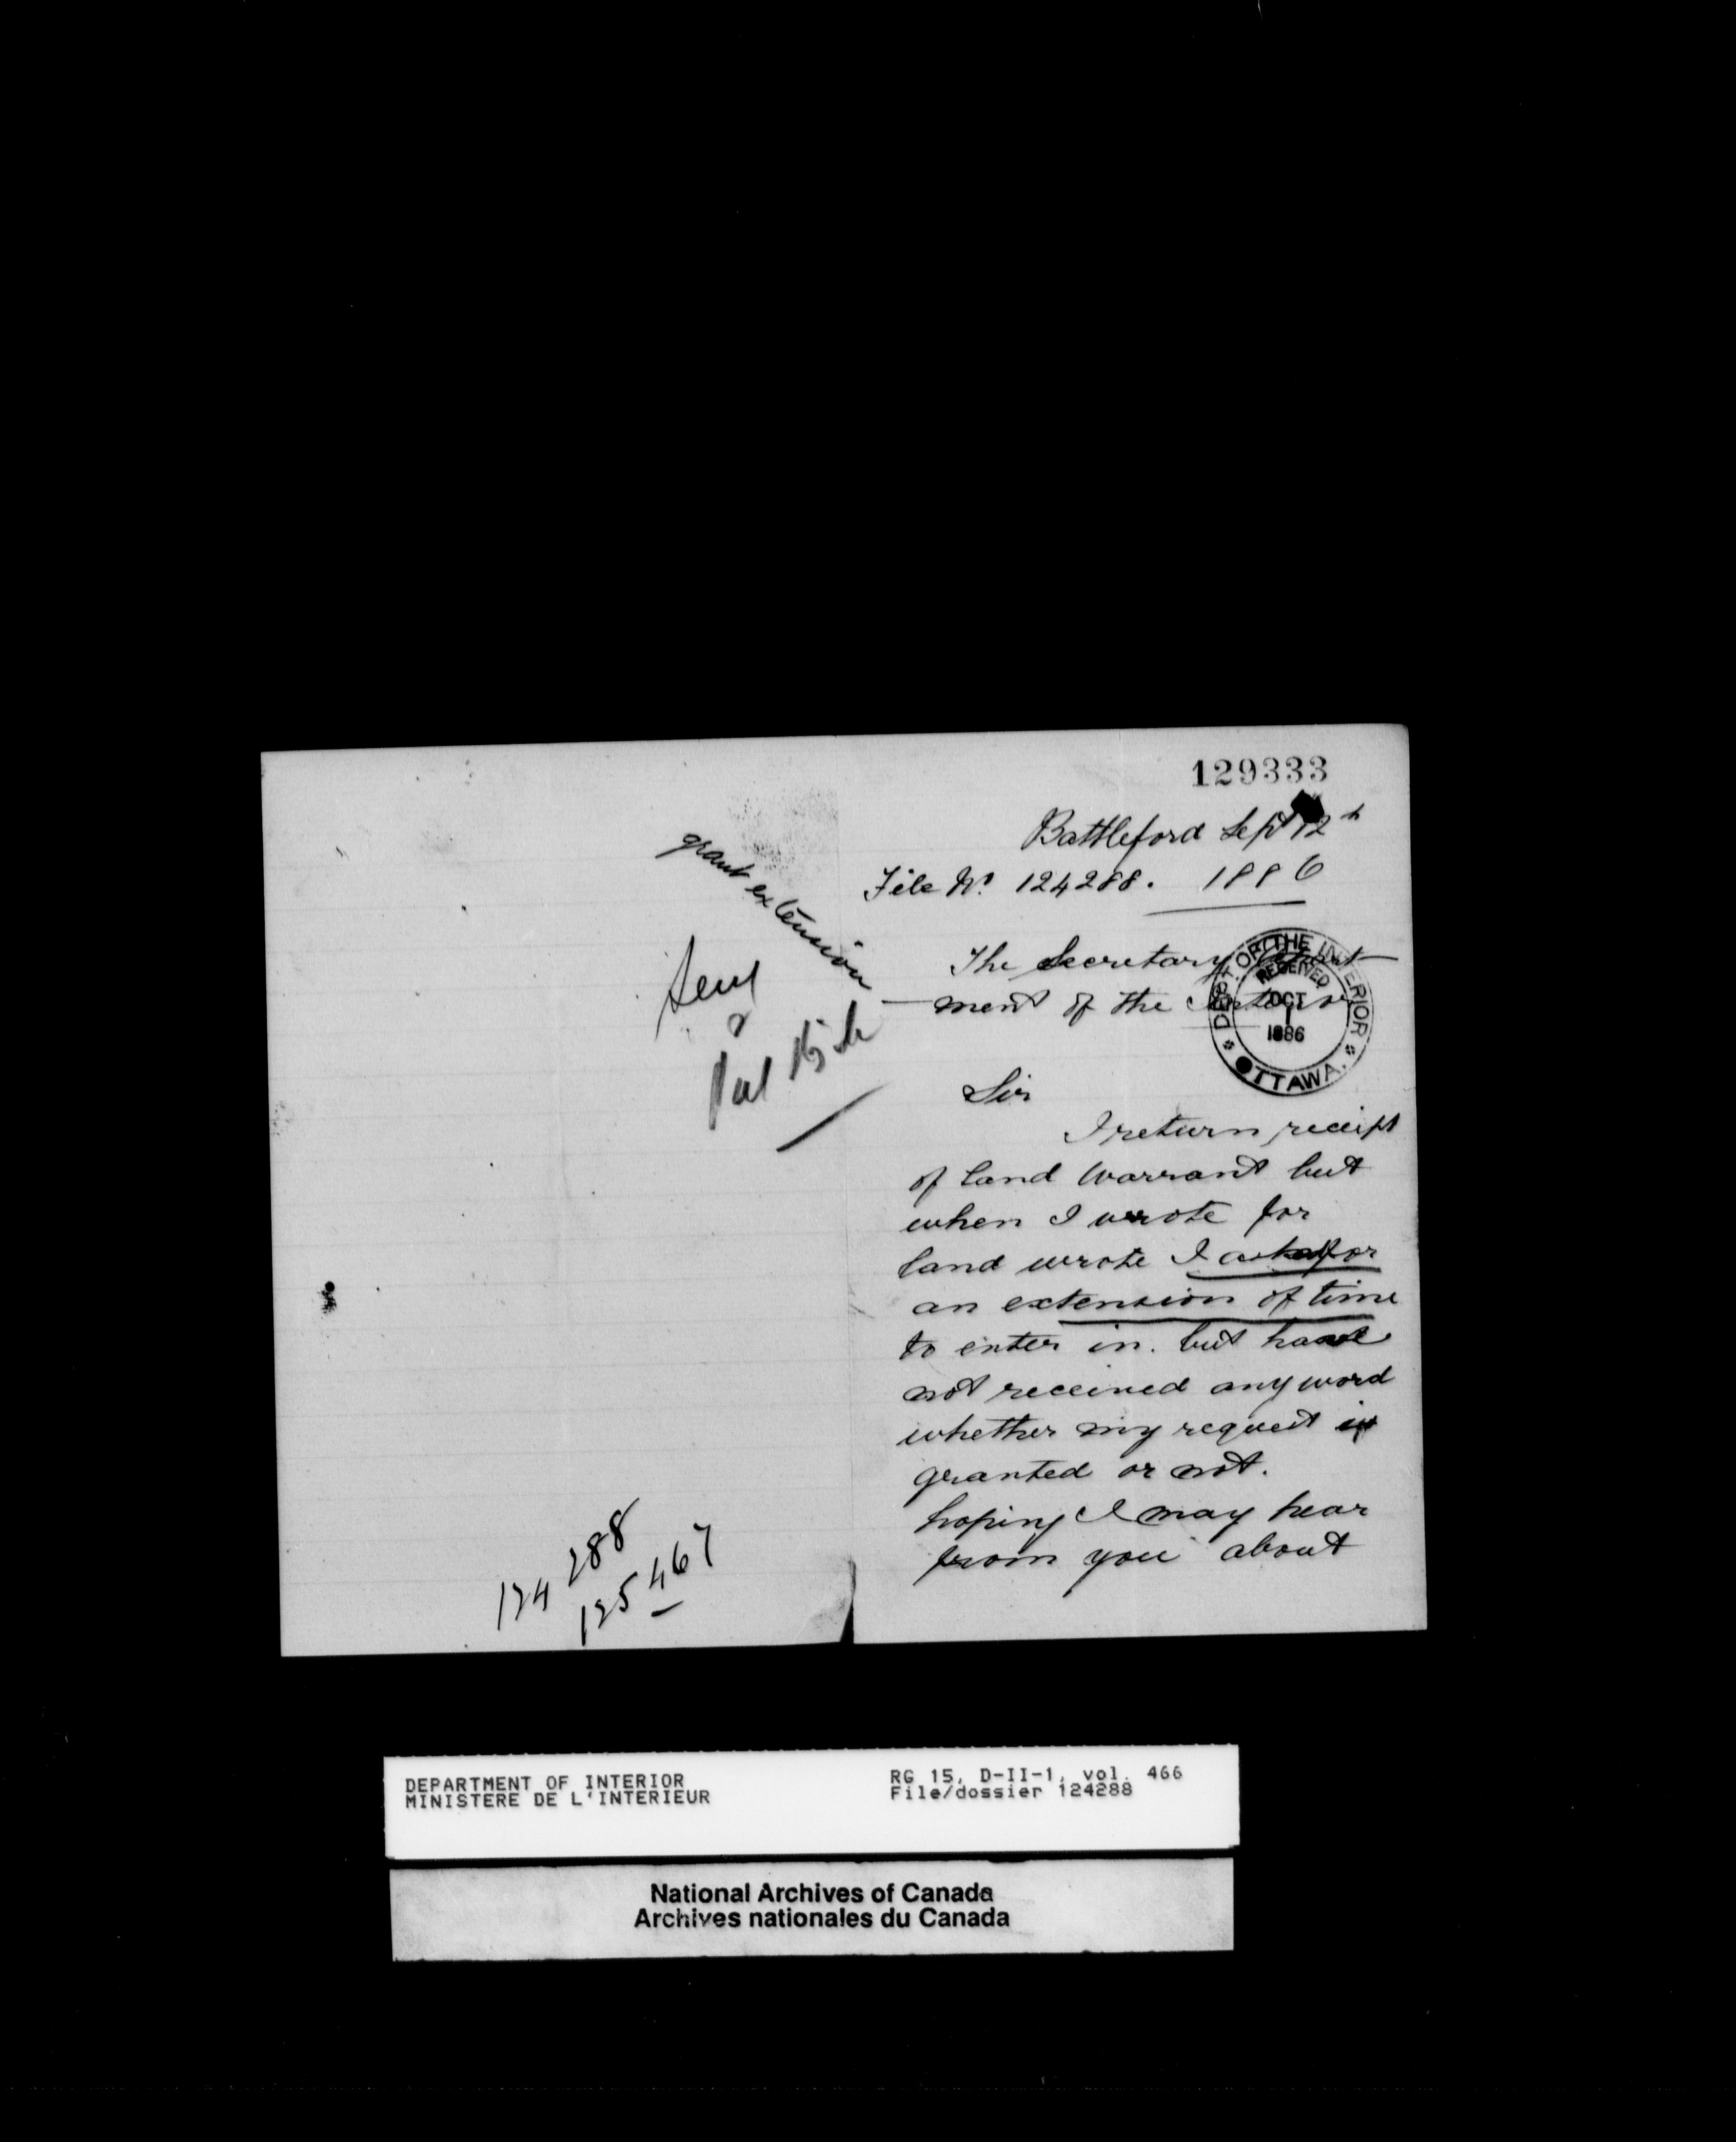 129333
Battleford Sept 12th
File No. 124288. 1886
The Secretary Depart-
ment of the Interior
DEPT. OF THE INTERIOR
RECEIVED
OCT
1
1886
OTTAWA.
Sir
I return receipt
of land Warrant but
when I wrote for
land wrote I ask for
an extension of time
to enter in. but have
not received any word
whether my request is
granted or not.
hoping I may hear
from you about
grant extension
124288
125467
DEPARTMENT OF INTERIOR
MINISTERE DE L'INTERIEUR
RG 15, D-II-1, vol. 466
File/dossier 124288
National Archives of Canada
Archives nationales du Canada